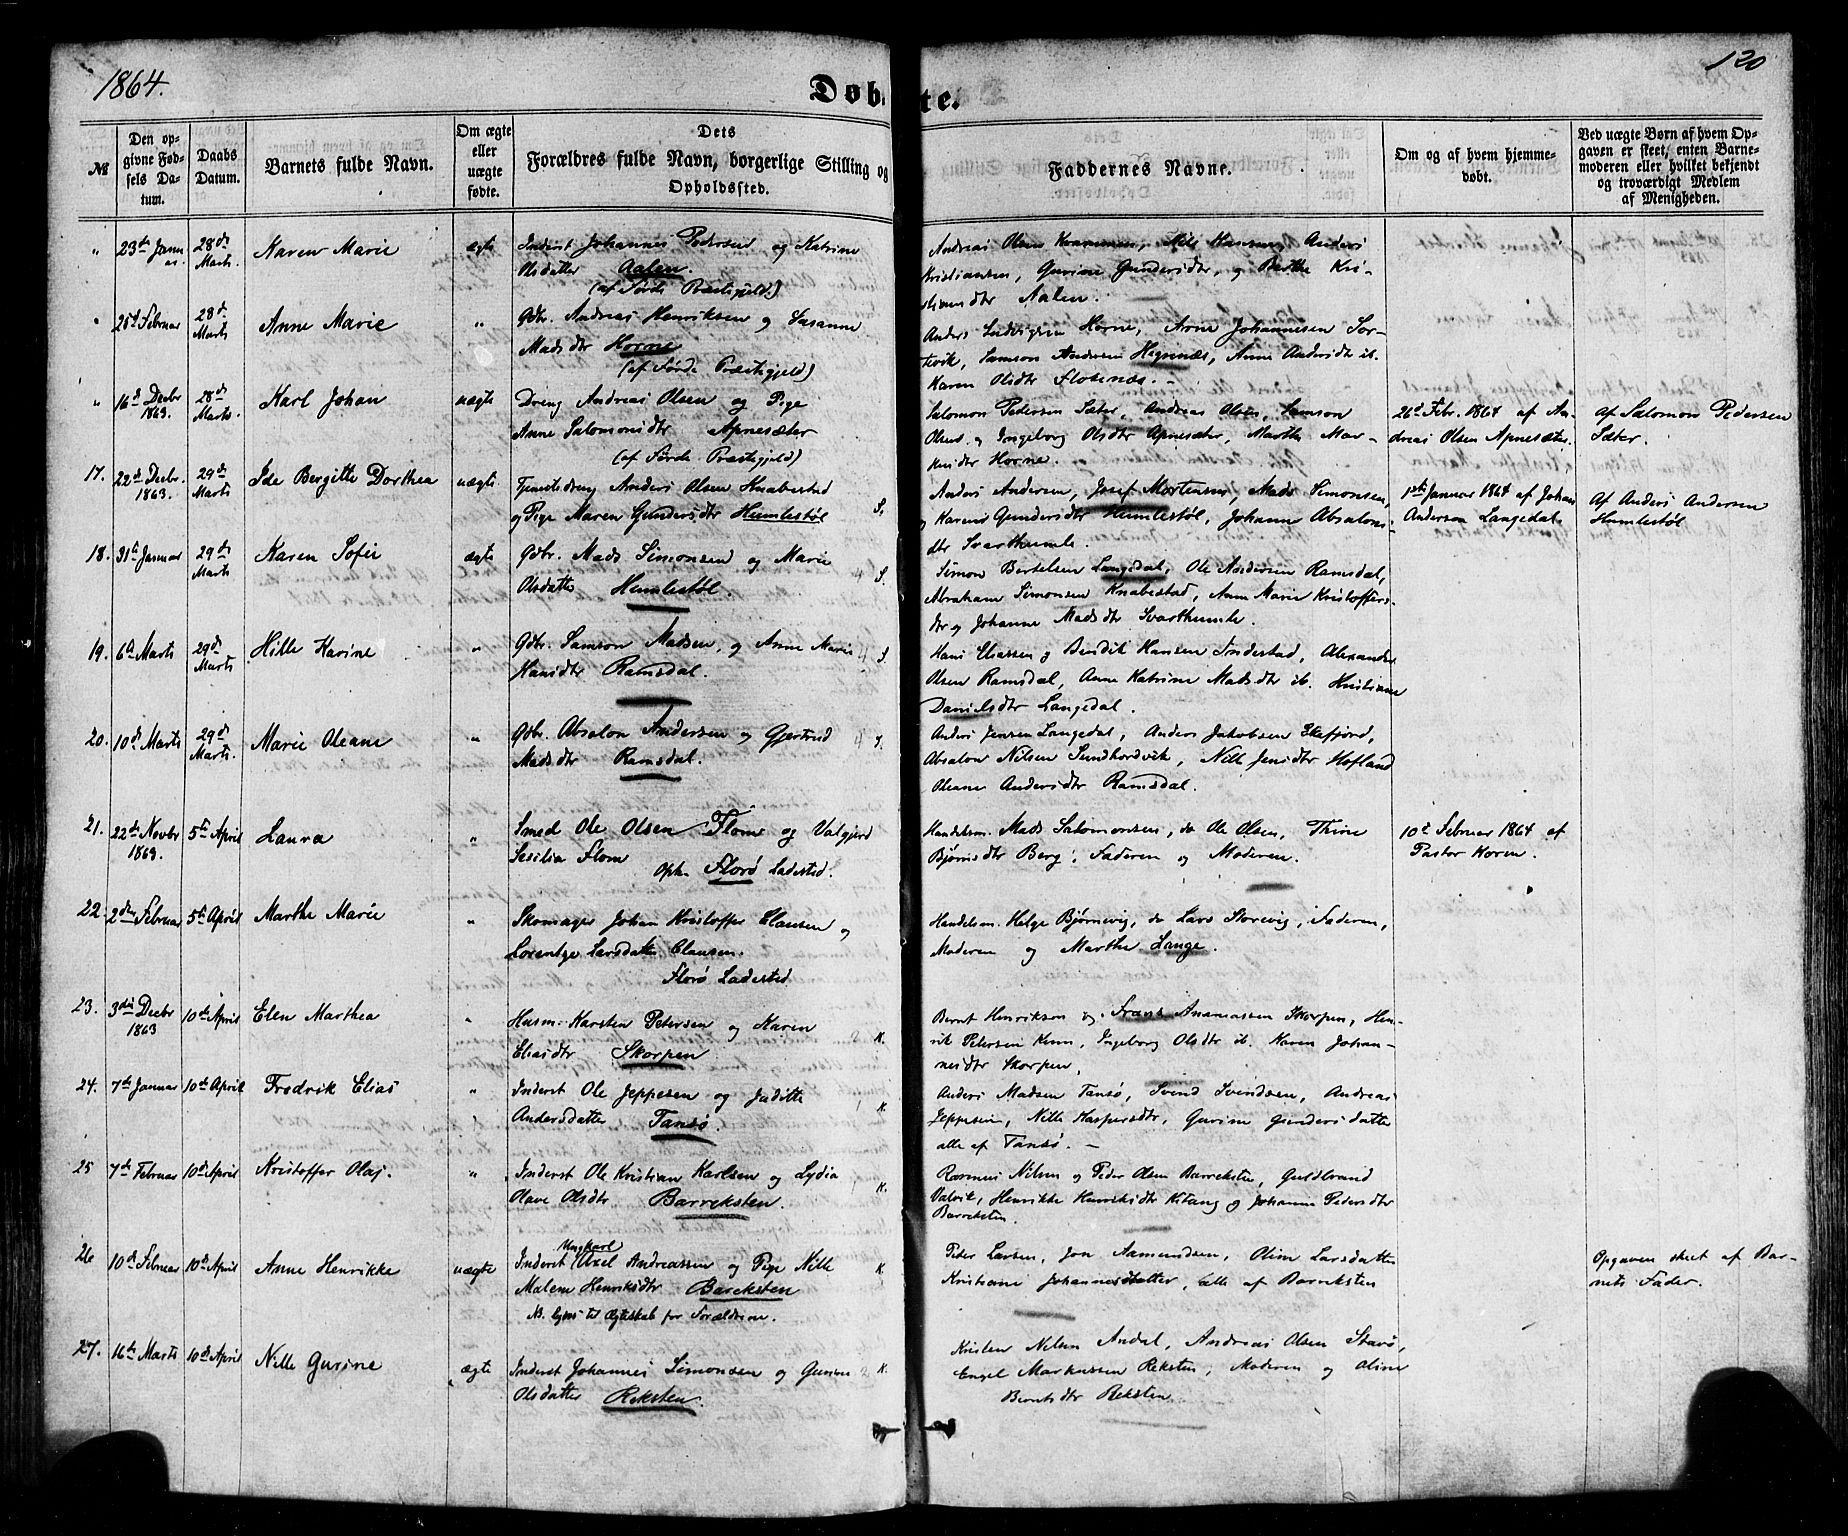 1864.
120
Døbte.
№
Den opgivne Fødsels Datum.
Daabs Datum.
Barnets fulde Navn.
Om ægte eller uægte fødte.
Dets Forældres fulde Navn, borgerlige Stilling og Opholdssted.
Faddernes Navne.
Om og af hvem hjemmedøbt.
Ved uægte Børn af hvem Opgaven er skeet, enten Barnemoderen eller hvilket bekjendt og troværdigt Medlem af Menigheden.
" 23de Janu 28de Marts Karen Marie ægte Inderst Johannes Pedersen og Katrine
Olsdatter Aalen.
(af Førde Præstegjeld.)
Andreas Olsen Nils Hansen, Anders
Kristiansen, Gurine Gundersdtr, og Berthe Kri-
stiansdtr Aalen.
" 25d Februar 28de Marts Anne Marie " Gbr. Andreas Henriksen og Susanne
Madsdtr Horne
(af Førde Præstegjeld)
Anders Ludvigsen Horne, Arne Johannesen Sor-
tevik, Samson Andersen Hegrenæs, Anne Andersdtr ib.
Karen Olsdtr Florenæs.
" 16d Decbr 1863. 28de Marts Karl Johan uægte Dreng Andreas Olsen og Pige
Anne Salomonsdtr Apnesæter
(af Førde Præstegjeld)
Salomon Pedersen Sæter, Andreas Olsen, Samson
Olsens og Ingeborg Olsdtr Apnesæter, Marthe Mar-
kusdtr Horne.
26d Febr. 1864 af An-
dreas Olsen Apnesæter.
Af Salomon Pedersen
Sæter.
17. 22de Decbr. 1863. 29de Marts Ide Bergitte Dorthea uægte Tjenestedreng Anders Olsen Knabestad
og Pige Maren Gundersdtr Humlestøl S.
Anders Andersen, Josef Mortensen, Mads Simonsen,
og Karen Gundersdtr Humlestøl, Johanne Absalons-
dtr Svarthumle.
1ste Januar 1864 af Johan
Anderson Langedal.
Af Anders Andersen
Humlestøl
18. 31te Januar 29de Marts Karen Sofie ægte Gbr. Mads Simonsen og Marie
Olsdatter Humlestøl. 4 S.
Simon Bertelsen Langedal, Ole Andersen Ramsdal,
Abraham Simonsen Knabestad, Anne Marie Kristoffers-
dtr og Johanne Madsdtr Svarthumle.
19. 6te Marts 29de Marts Hille Karine " Gbr. Samson Madsen, og Anne Marie
Hansdtr Ramsdal. 4 S.
Hans Eliassen og Bendik Hansen Indrestad, Alexander
Olsen Ramsdal, Anne Katrine Madsdtr ib. Kristiane
Danielsdtr Langedal.
20. 10de Marts 29de Marts. Marie Oleane " Gbr. Absalon Andersen og Gjertrud
Madsdtr Ramsdal. 4 S.
Anders Jensen Langedal, Anders Jakobsen Ekefjord,
Absalon Nilsen Sundhordvik, Nille Jensdtr Hofland
Oleane Andersdtr Ramsdal.
21. 22de Novbr 1863. 5te April Laura " Smed Ole Olsen Flom og Valgjerd
Sesilia Flom
Oph. Florø Ladested.
Handelsm. Mads Salomonsen, do Ole Olsen, Thine
Bjørnsdtr Berg, Faderen og Moderen.
10d Februar 1864 af
Pastor Koren.
22. 2den Februar 5te April Marthe Marie " Skomager Johan Kristoffer Clausen og
Lorentze Larsdatter Clausen.
Florø Ladested
Handelsm. Helge Bjørnevig, do Lars Storevig, Faderen,
Moderen og Marthe Lange.
23. 3die Decbr 1863 10de April Elen Marthea " Husm. Karsten Petersen og Karen
Eliasdtr Skorpen 2 K.
Bernt Henriksen og Frans Ananiassen Skorpen, Hen-
rik Petersen Kinn, Ingeborg Olsdtr ib. Karen Johan-
nesdtr Skorpen,
24. 7de Januar 10de April Fredrik Elias " Inderst Ole Jeppesen og Judithe
Andersdatter Tansø. 1 K.
Anders Madsen Tansø, Svend Svendsen, Andreas
Jeppesen, Nille Kaspersdtr, Gurine Gundersdatter
alle af Tansø.
25 7de Februar 10de April Kristoffer Olaj. " Inderst Ole Kristian Karlsen og Lydia
Olave Olsdtr. Barreksten. K.
Rasmus Nilsen og Peder Olsen Barreksten, Guldbrand
Valvik, Henrikke Henriksdtr Kitang og Johanne Pedersdtr
Barreksten.
26 10de Februar 10de April Anne Henrikke uægte Ungkarl
Inderst Axel Andreassen og Pige Nille
Malene Henriksdtr Bareksten K.
NB. Lyst til Ægteskab for Forældrene.
Peter Larsen, Jon Aamundsen, Oline Larsdatter
Kristiane Johannesdatter, alle af Barreksten
Opgaven skeet af Bar-
nets Fader.
27. 16te Marts 10de April Nille Gurine ægte Inderst Johannes Simonsen og Gurine
Olsdatter Reksten. 2 K.
Kristen Nilsen Andal, Andreas Olsen Stavø,
Engel Markussen Reksten, Moderen og Oline
Berntsdtr Reksten.